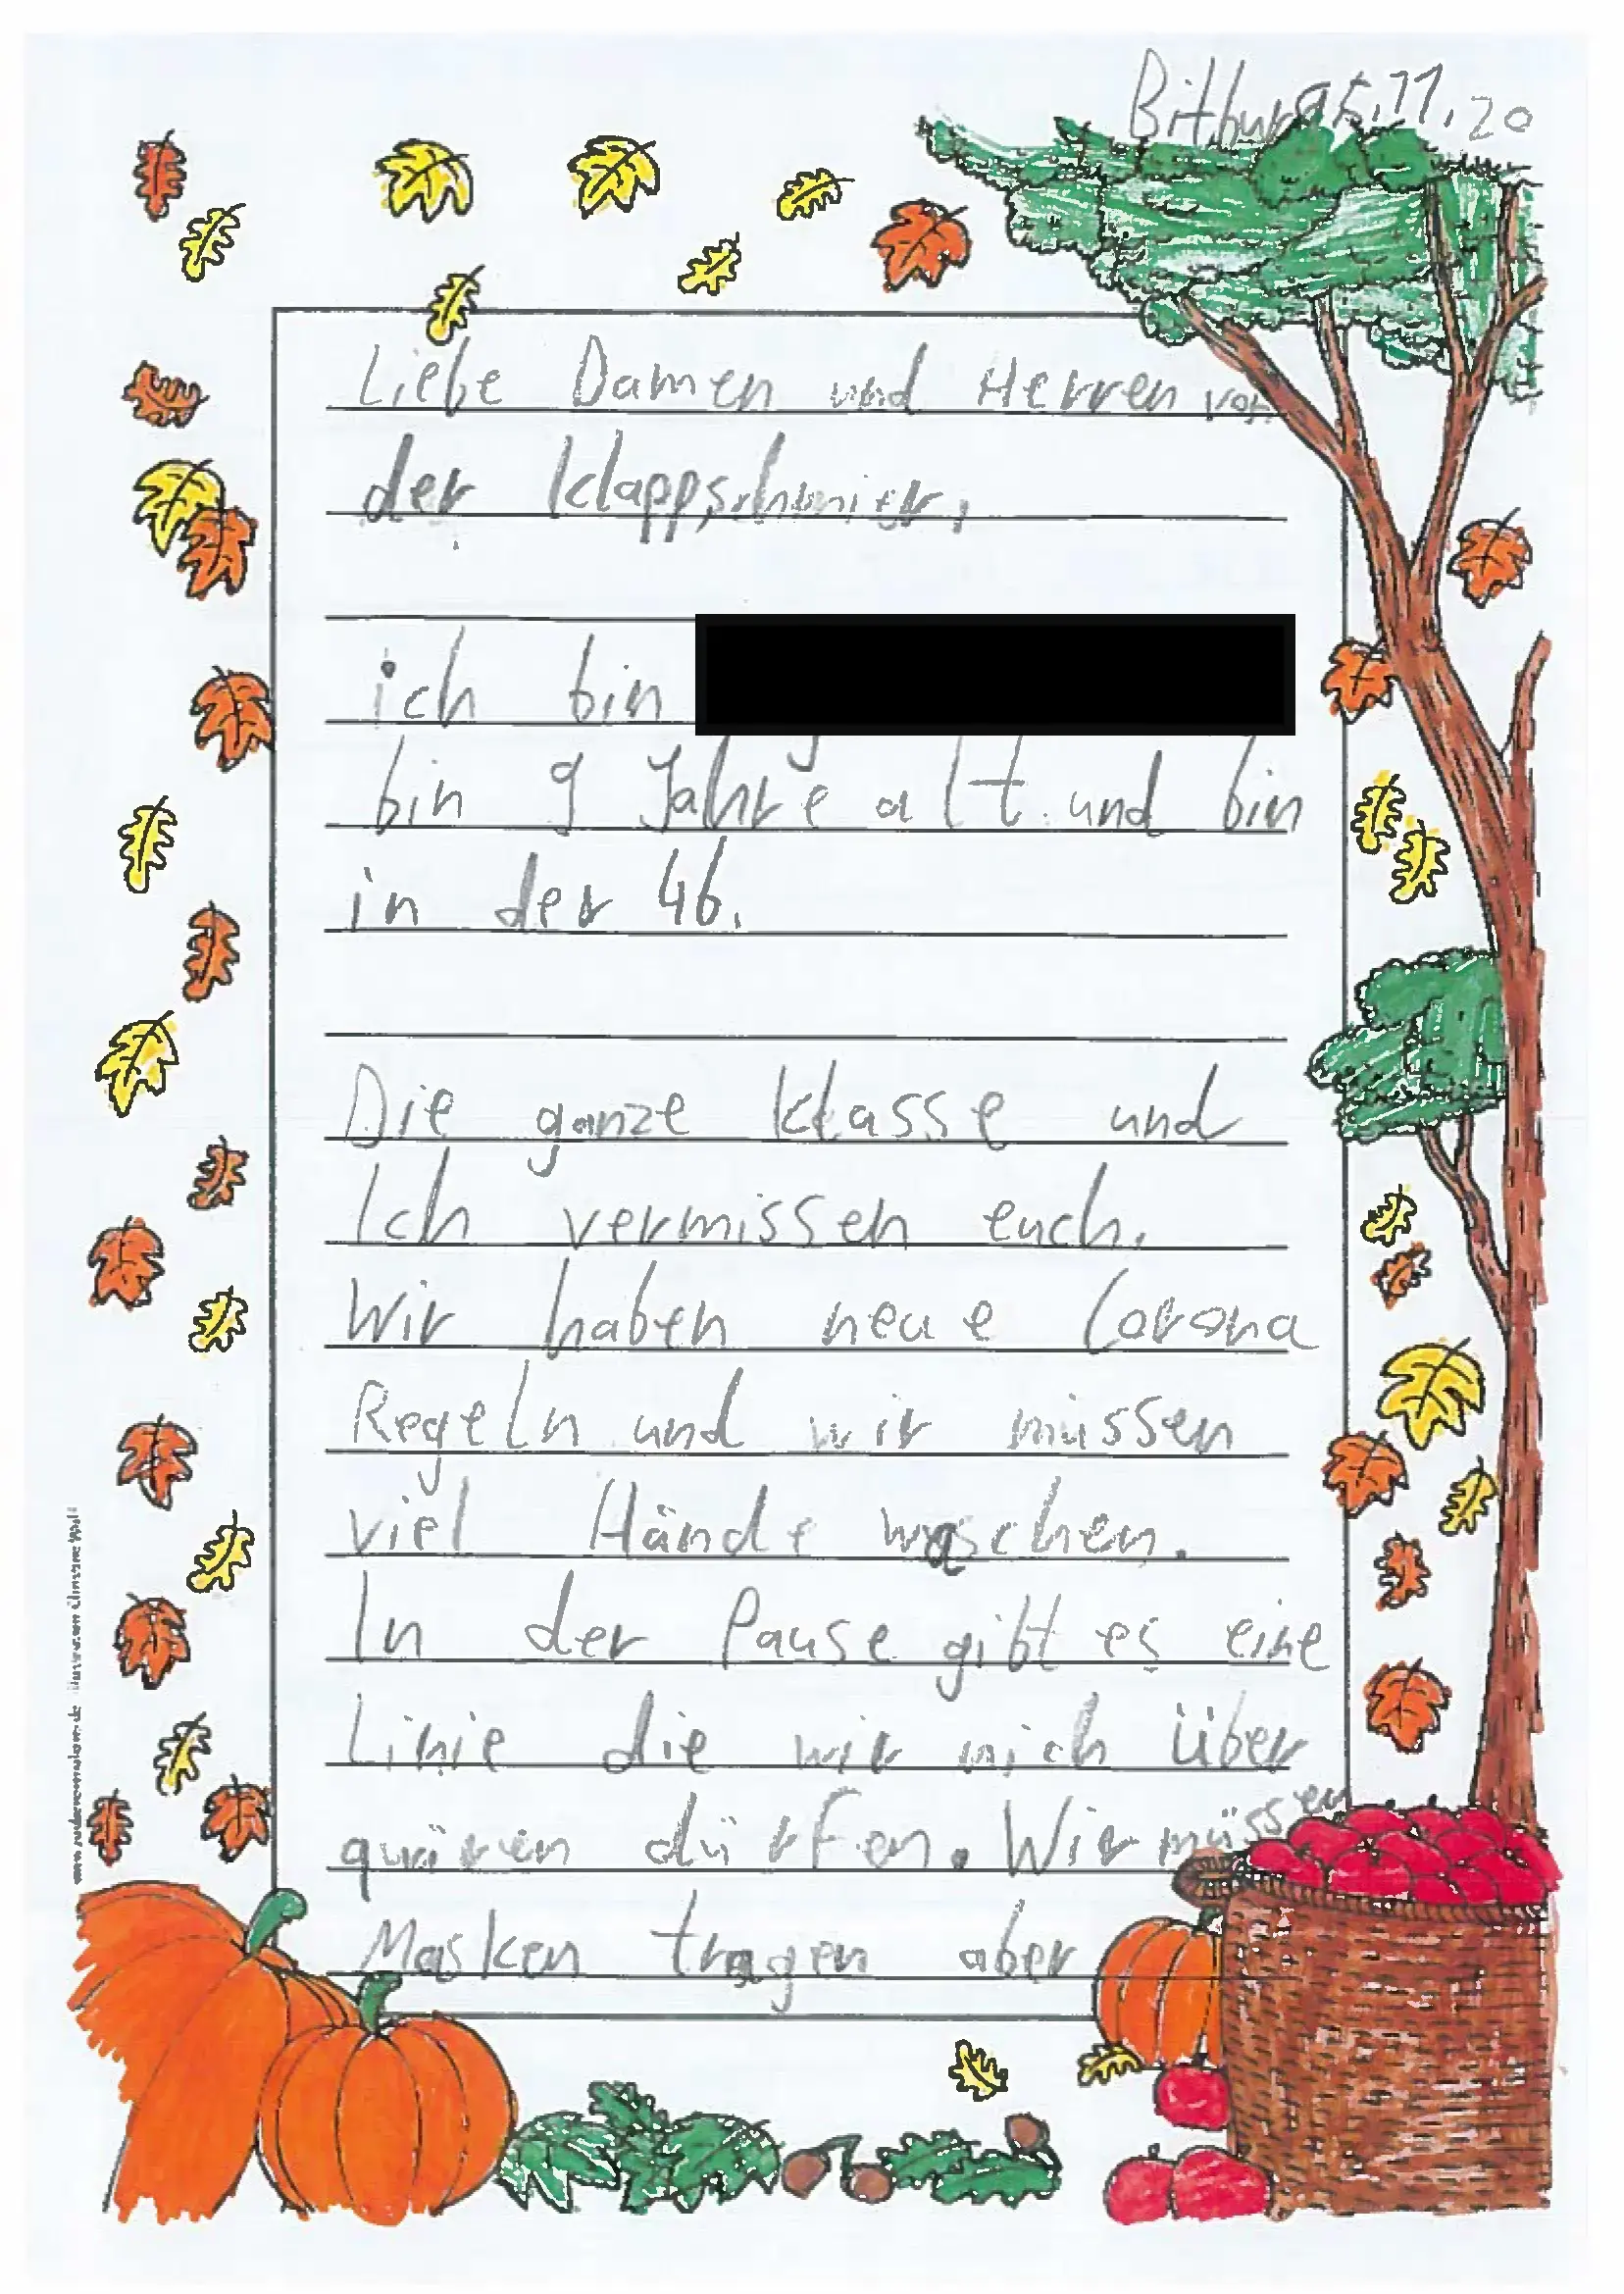 Bitburg 5.11.20
Liebe Damen und Herren von
der Klappschmier,
ich bin
bin 9 Jahre alt und bin
in der 4b.
Die ganze Klasse und
Ich vermissen euch.
Wir haben neue Corona
Regeln und wir müssen
viel Hände waschen.
In der Pause gibt es eine
Linie die wir nich über
quären dürfen. Wir müssen
Masken tragen aber